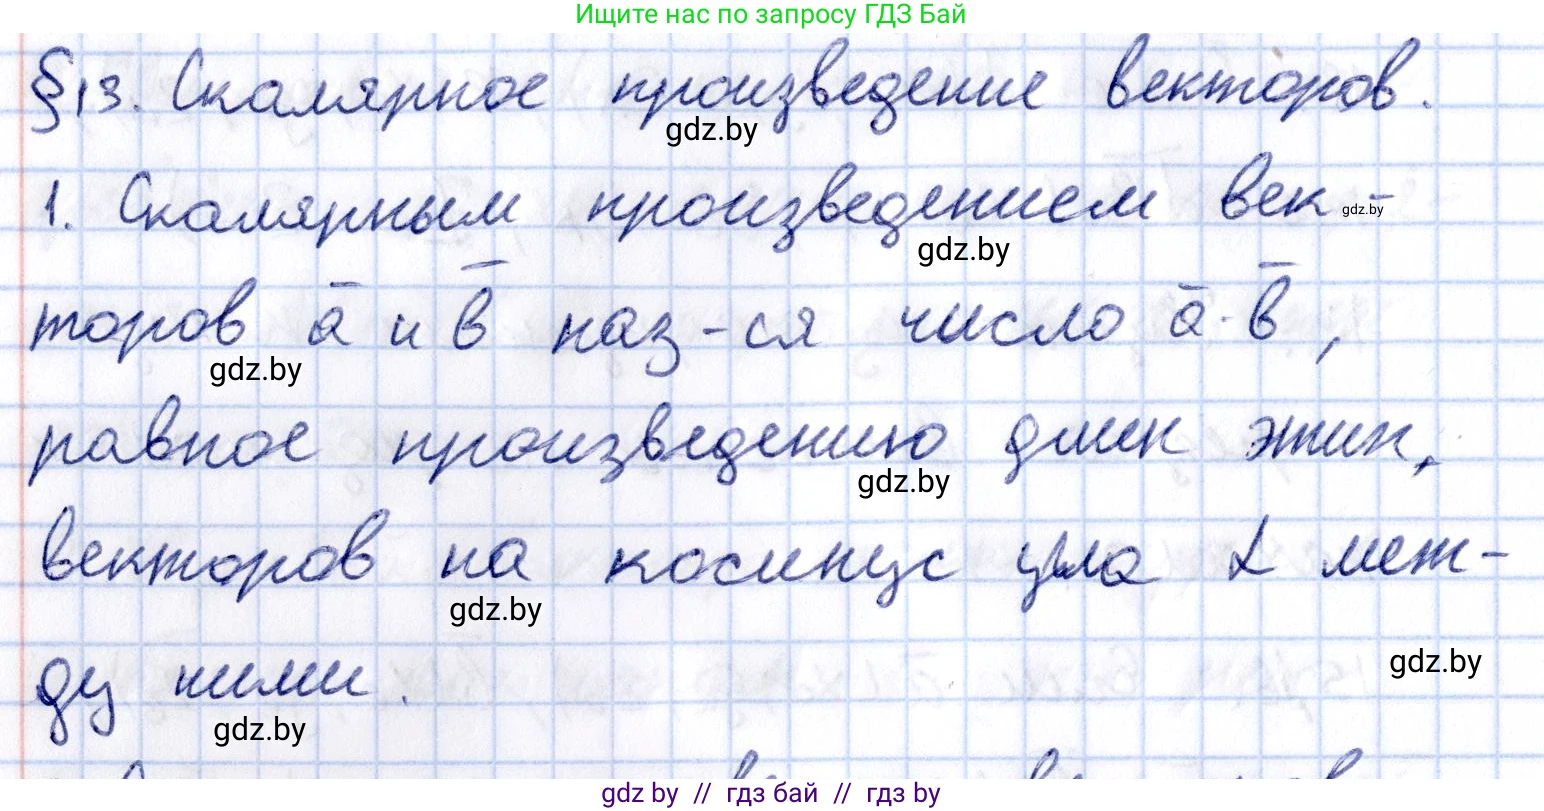 Ищите нас по запросу ГДЗ Бай
§13. Скалярное произведение векторов.
gdz.by
1. Скалярным произведением век-
gdz.by
gdz.by
торов a̅ и b̅ наз-ся число a̅·b̅,
gdz.by
равное произведению длин этих
gdz.by
векторов на косинус угла α меж-
gdz.by
ду ними.
gdz.by
gdz.by
gdz by // гдз бай // гдз by